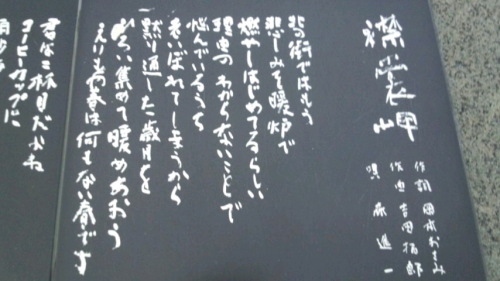 襟裳岬
作詞 岡本おさみ
作曲 吉田拓郎
唄 森進一
北の街ではもう
悲しみを暖炉で
燃やしはじめてるらしい
理由のわからないことで
悩んでいるうち
老いぼれてしまうから
黙り通した歳月を
ひろい集めて暖めあおう
えりもの春は何もない春です
君は二杯目だよね
コーヒーカップに